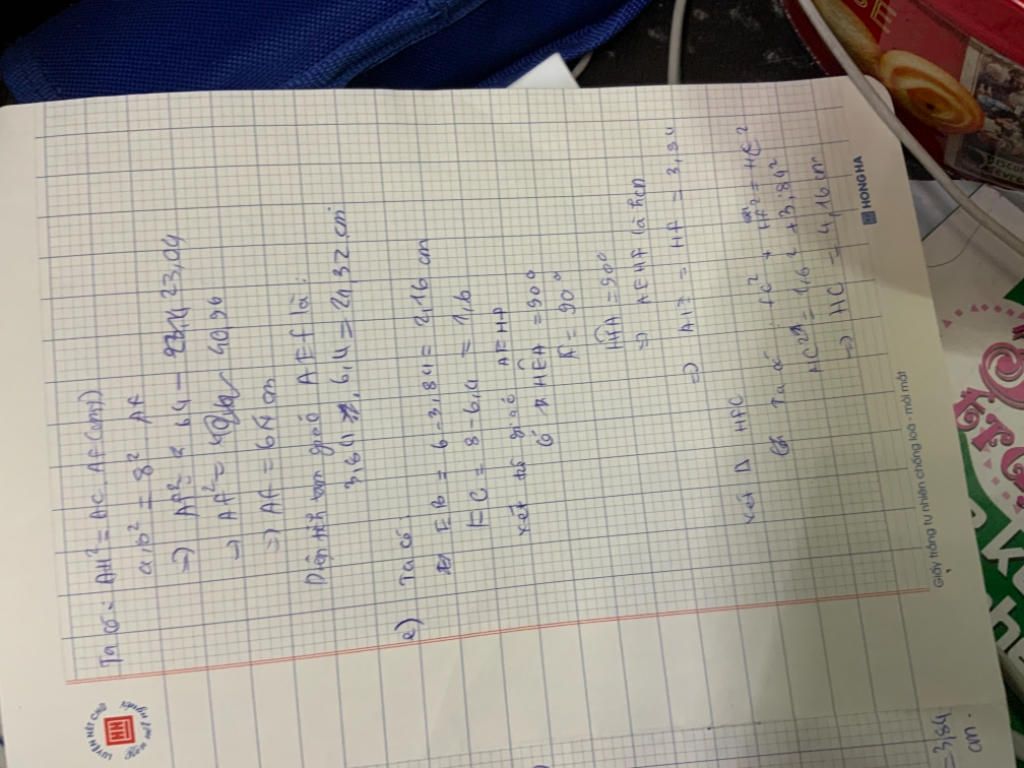 LUYỆN NÉT CHỮ
HH
Ta có: AH² = AC . AF (cmt)
=> AF² = 64 - 23,04
=> AF² = 40,96
=> AF = 6,4 cm
Diện tích tam giác AEF là:
6,4 = 24,32 cm
e) Ta có:
EB = 6 - 3,84 = 2,16 cm
FC = 8 - 6,4 = 1,6
xét tứ giác AEHF
có HEA = 90°
A = 90°
HFA = 90°
=> AEHF là hcn
=> = HF = 3,84
xét Δ HFC
Ta có: FC² + HF² = HC²
HC² = 1,6² + 3,84²
=> HC = 4,16 cm
Giấy trắng tự nhiên chống loá - mỏi mắt
HONG HA
= 3,84
cm.